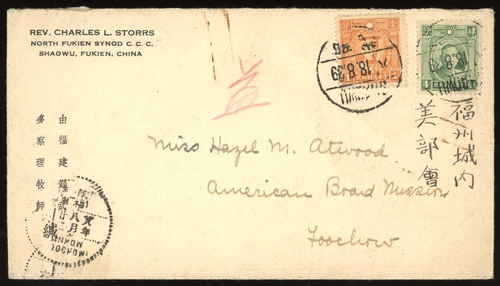 REV. CHARLES L. STORRS
NORTH FUKIEN SYNOD C. C. C.
SHAOWU, FUKIEN, CHINA
18.8.39
福州城內
美部會
Miss Hazel M. Atwood
American Board Mission
Foochow
由福建邵武
多察理牧師
八月
FOOCHOW